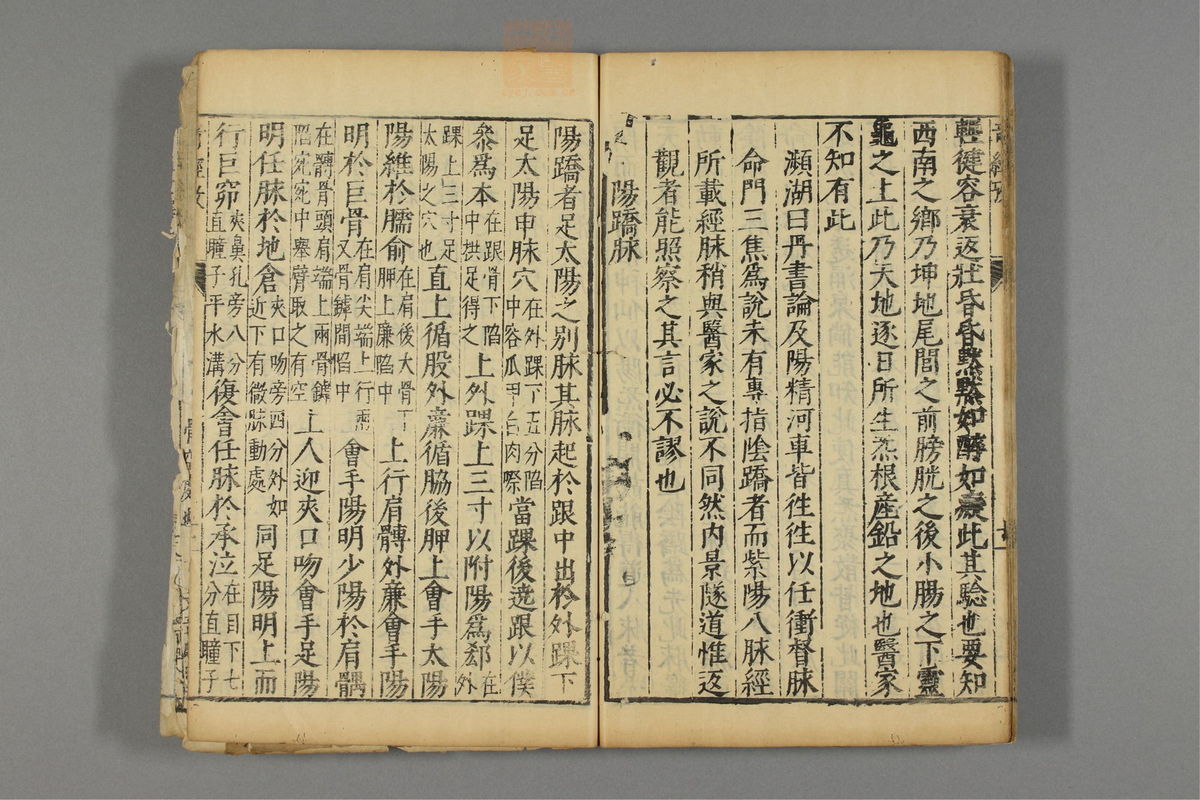 輕健容衰返壯昏昏默默如醉如癡此其驗也要知
西南之鄉乃坤地尾閭之前膀胱之後小腸之下靈
龜之上此乃天地逐日所生炁根產鉛之地也醫家
不知有此
瀕湖曰丹書論及陽精河車皆徃徃以任衝督脉
命門三焦爲說未有專指隂蹻者而紫陽八脉經
所載經脉稍與醫家之說不同然内景隧道惟返
觀者能照察之其言必不謬也
陽蹻脉
陽蹻者足太陽之别脉其脉起於跟中出於外踝下
足太陽申脉穴在外踝下五分陷中容爪甲白肉際當踝後遶跟以僕
參爲本在跟骨下陷中拱足得之上外踝上三寸以附陽爲郄在外
踝上三寸足太陽之穴也直上循股外廉循脇後胛上會手太陽
陽維於臑俞在肩後大骨下胛上廉陷中上行肩髆外廉會手陽
明於巨骨在肩尖端上行兩叉骨罅間陷中會手陽明少陽於肩髃
在髆骨頭肩端上兩骨罅陷宛宛中舉臂取之有空上人迎夾口吻會手足陽
明任脉於地倉夾口吻旁四分外如近下有微脉動處同足陽明上而
行巨窌夾鼻孔旁八分直瞳子平水溝復會任脉於承泣在目下七分直瞳子